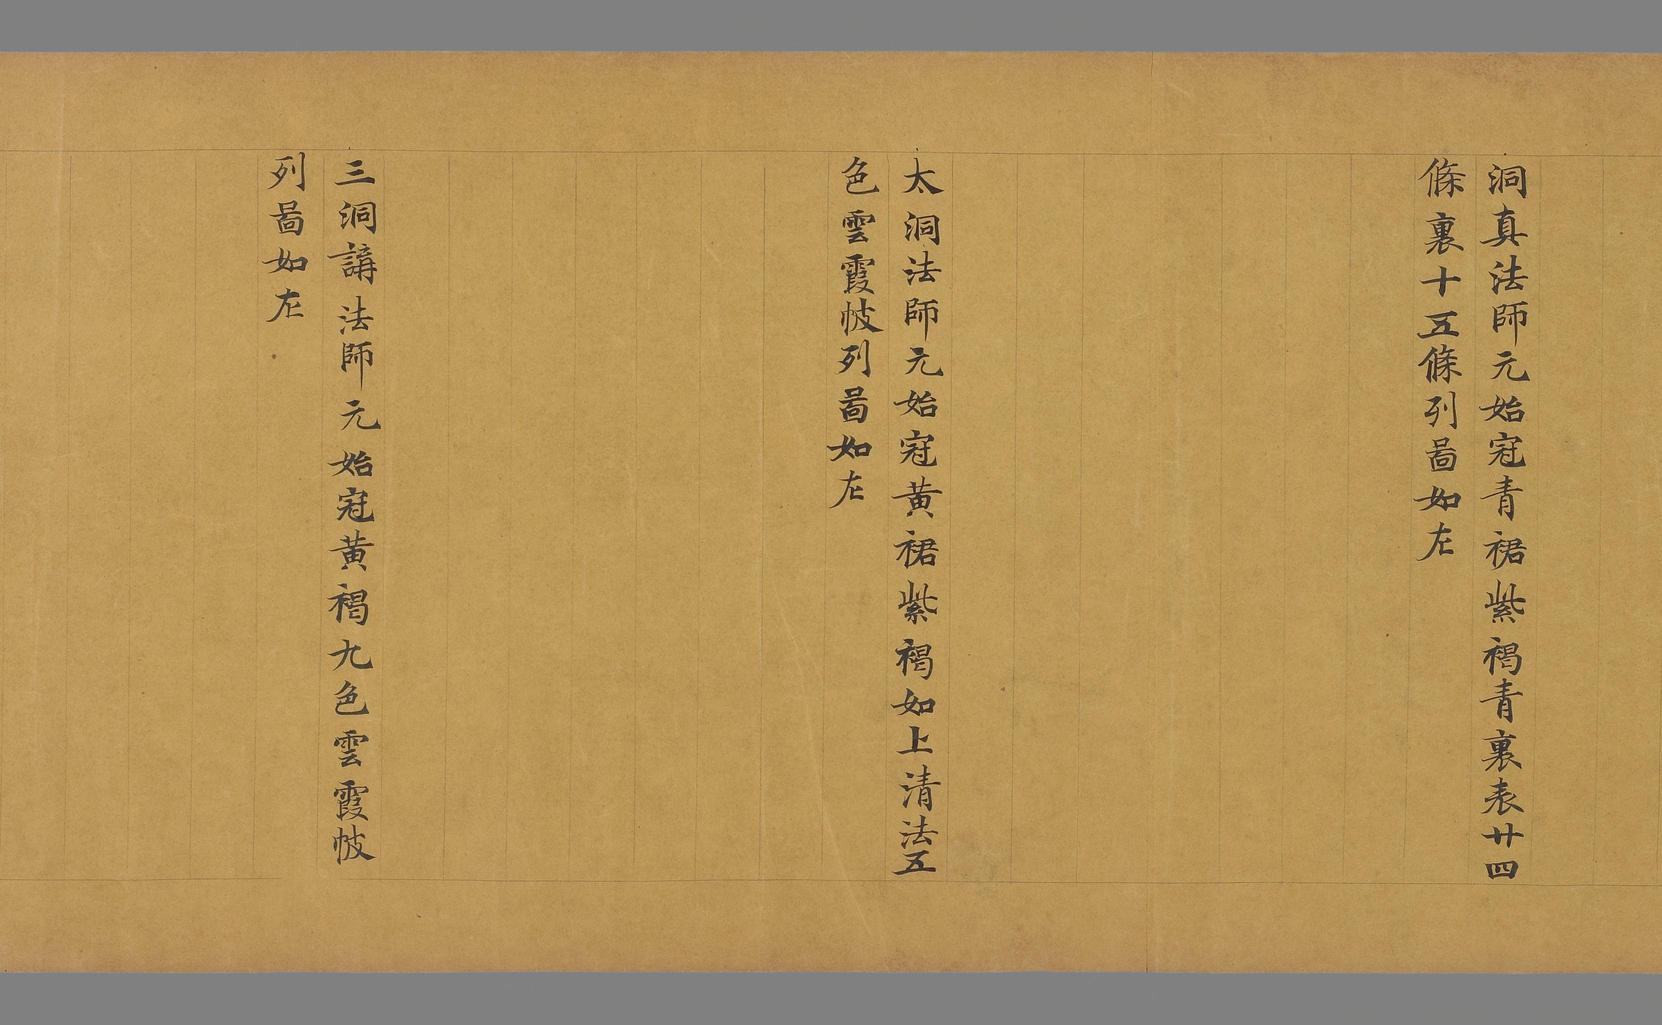 洞真法師元始冠青裙紫褐青裏表廿四
條裏十五條列啚如左
太洞法師元始冠黃裙紫褐如上清法五
色雲霞帔列啚如左
三洞講法師元始冠黃褐九色雲霞帔
列啚如左